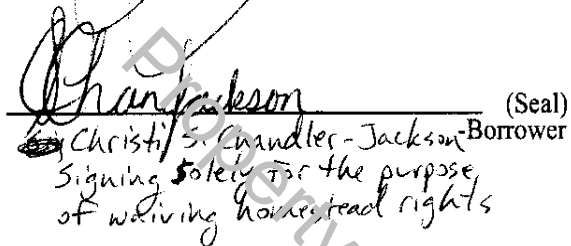 Jackson
(Seal)
Christi S. Chandler-Jackson -Borrower
Signing solely for the purpose
of waiving homestead rights
Property